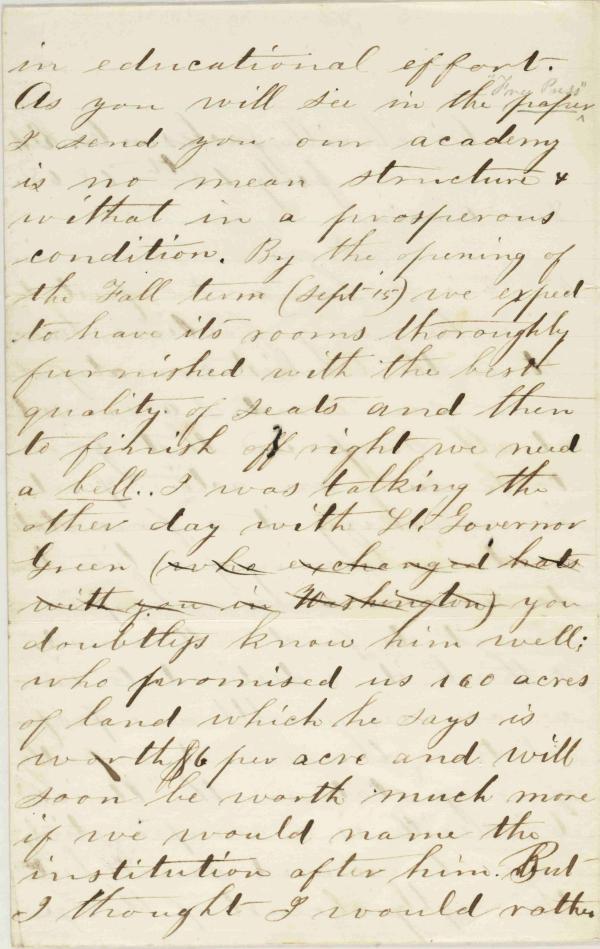 in educational effort.
"Free Press"
As you will see in the paper
I send you our academy
is no mean structure &
withat in a prosperous
condition. By the opening of
the Fall term (Sept 15) we expect
to have its rooms thoroughly
furnished with the best
quality of seats and then
to finish off right we need
a bell.. I was talking the
other day with Lt. Governor
Green (who exchanged hats
with you in Washington) you
doubtless know him well;
who promised us 160 acres
of land which he says is
worth $6 per acre and will
soon be worth much more
if we would name the
institution after him. But
I thought I would rather